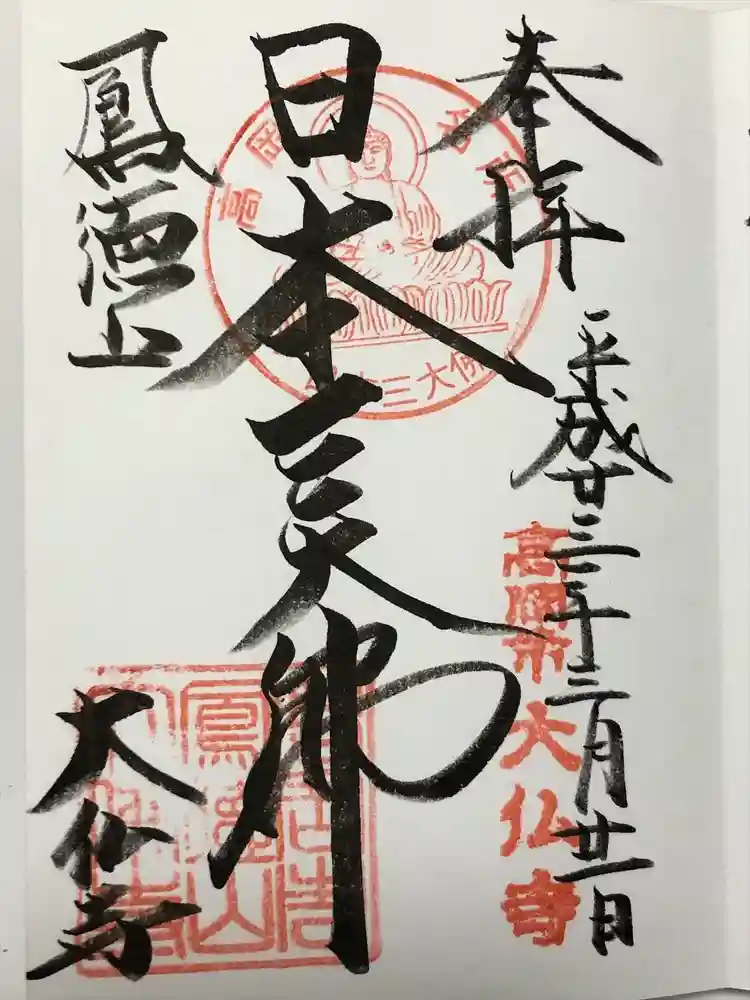 奉拝
平成廿三年三月廿一日
高岡市大仏寺
日本三大佛
高岡名所
日本三大佛
鳳徳山
大仏寺
鳳徳山
大佛寺